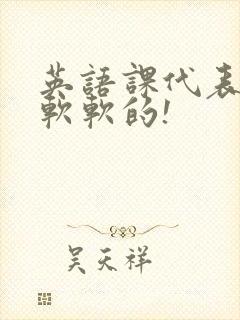 英語課代表
軟軟的!
吴天祥